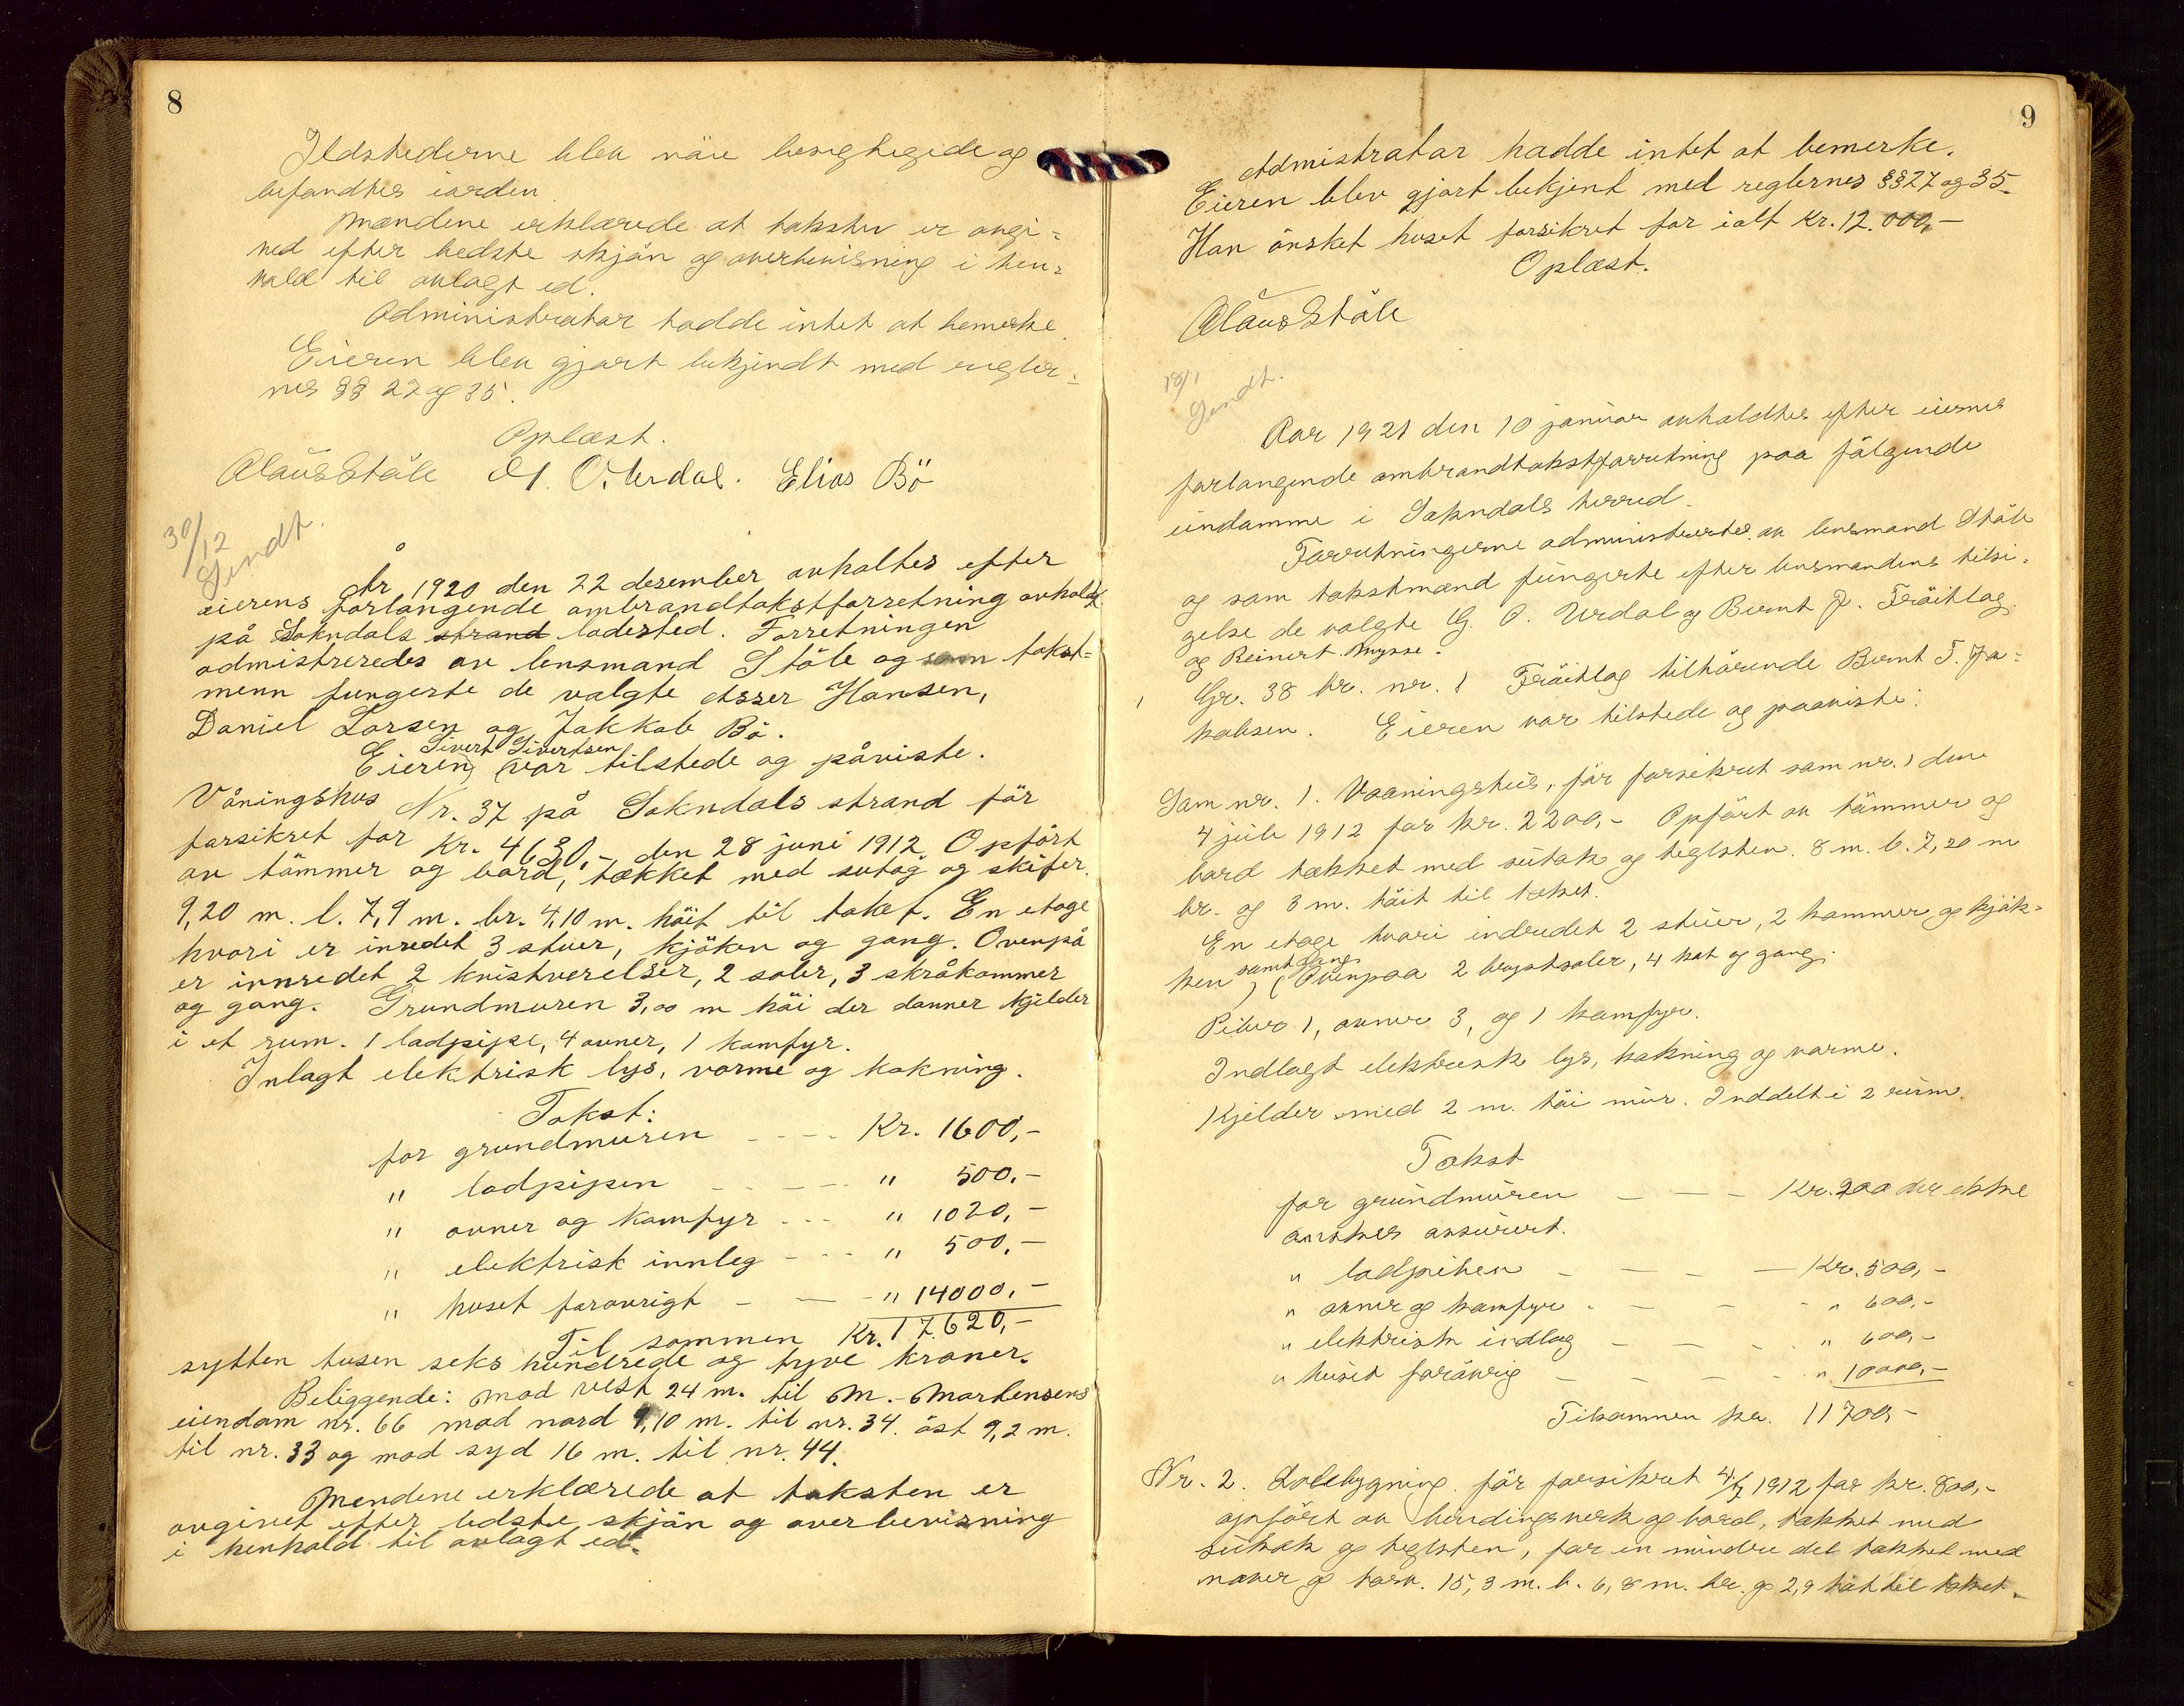 8
Ildstederne blev nöie besigtegede og
befandtes iorden.
Mændene erklærede at taksten er avgi=
ved efter bedste skjön og overbevisning i hen=
hald til avlagt ed.
Administratar hadde intet at bemerke.
Eieren blev gjort bekjendt med regler=
nes §§ 27 og 35.
Oplæst.
Claus Ståle G. O. Urdal. Elias Bö
30/12
Sendt.
År 1920 den 22 desember avholtes efter
eierens forlangende ombrandtakstforretning avholdt
på Sokndals strand ladested. Forretningen
admistreredes av lensmand Ståle og som takst=
menn fungerte de valgte Asser Hansen,
Daniel Larsen og Jakkob Bö.
Sivert Sivertsen
Eieren var tilstede og påviste.
Våningshus Nr. 37 på Sokndals strand för
forsikret for Kr. 4630,- den 28 juni 1912. Opfört
av tömmer og bord, tækket med sutag og skifer.
9,20 m. l. 7,9 m. br. 4,10 m. höit til taket. En etage
hvori er inredet 3 stuer, kjöken og gang. Ovenpå
er innredet 2 kvistverelser, 2 saler, 3 skråkammer
og gang. Grundmuren 3,00 m höi der danner kjelder
i et rum. 1 ladpipe, 4 ovner, 1 komfyr.
Inlagt elektrisk lys, varme og kokning.
Takst:
for grundmuren - - - - Kr. 1600,-
" ladpipen - - - - - " 500,-
" ovner og komfyr - - - " 1020,-
" elektrisk innleg - - - " 500,-
" huset forövrigt - - - " 14000,-
Til sammen Kr. 17.620,-
sytten tusen seks hundrede og tyve kroner.
Beliggende: mod vest 24 m. til M. Martensens
eiendom nr. 66 mod nord 9,10 m. til nr. 34. öst 9,2 m.
til nr. 33 og mod syd 16 m. til nr. 44.
Mendene erklærede at taksten er
avgivet efter bedste skjön og overbevisning
i henhold til avlagt ed.
9
Admistratar hadde intet at bemerke.
Eieren blev gjort bekjent med reglernes §§ 27 og 35.
Han önsket huset forsikret for ialt Kr. 12.000,-
Oplæst.
Claus Ståle
18/1
Sendt.
Aar 1921 den 10 januar avholdtes efter eiernes
forlangende ombrandtakstforretning paa fölgende
eiendomme i Sokndals herred.
Forretningerne administrertes av lensmand Ståle
og som takstmænd fungerte efter lensmandens tilsi=
gelse de valgte G. O. Urdal og Bernt J. Fröitlog
og Reinert Mysse.
1 Gr. 38 br. nr. 1 Fröitlog tilhörende Bernt T. Ja=
kobsen. Eieren var tilstede og paaviste:
Som nr. 1. Vaaningshus, för forsikret som nr. 1 den
4 juli 1912 for kr. 2200,- Opfört av tömmer og
bord tækket med sutak og teglsten. 8 m. l. 7,20 m
br. og 3 m. höit til taket.
En etage hvori indredet 2 stuer, 2 kammer og kjök=
samt gang
ken. Ovenpaa 2 brystsaler, 4 kot og gang.
Piber 1, ovner 3, og 1 komfyr.
Indlagt elektrisk lys, kokning og varme.
Kjelder med 2 m. höi mur. Inddelt i 2 rum.
Takst
for grundmuren - - - Kr. 200 der ikke
önskes assurert.
" ladpiben - - - - Kr. 500,-
" ovner og komfyr - - - - " 600,-
" elektrisk indlag - - - - " 600,-
" huset forövrig - - - - " 10000,-
Tilsammen kr. 11700,-
Nr. 2. Lobebygning för forsikret 4/7 1912 for kr. 800,-
opfört av bindingsverk og bord, tækket med
sutak og teglsten, for en mindre del tækket med
næver og torv. 15,3 m. l. 6,8 m. br. og 2,9 höit til taket.